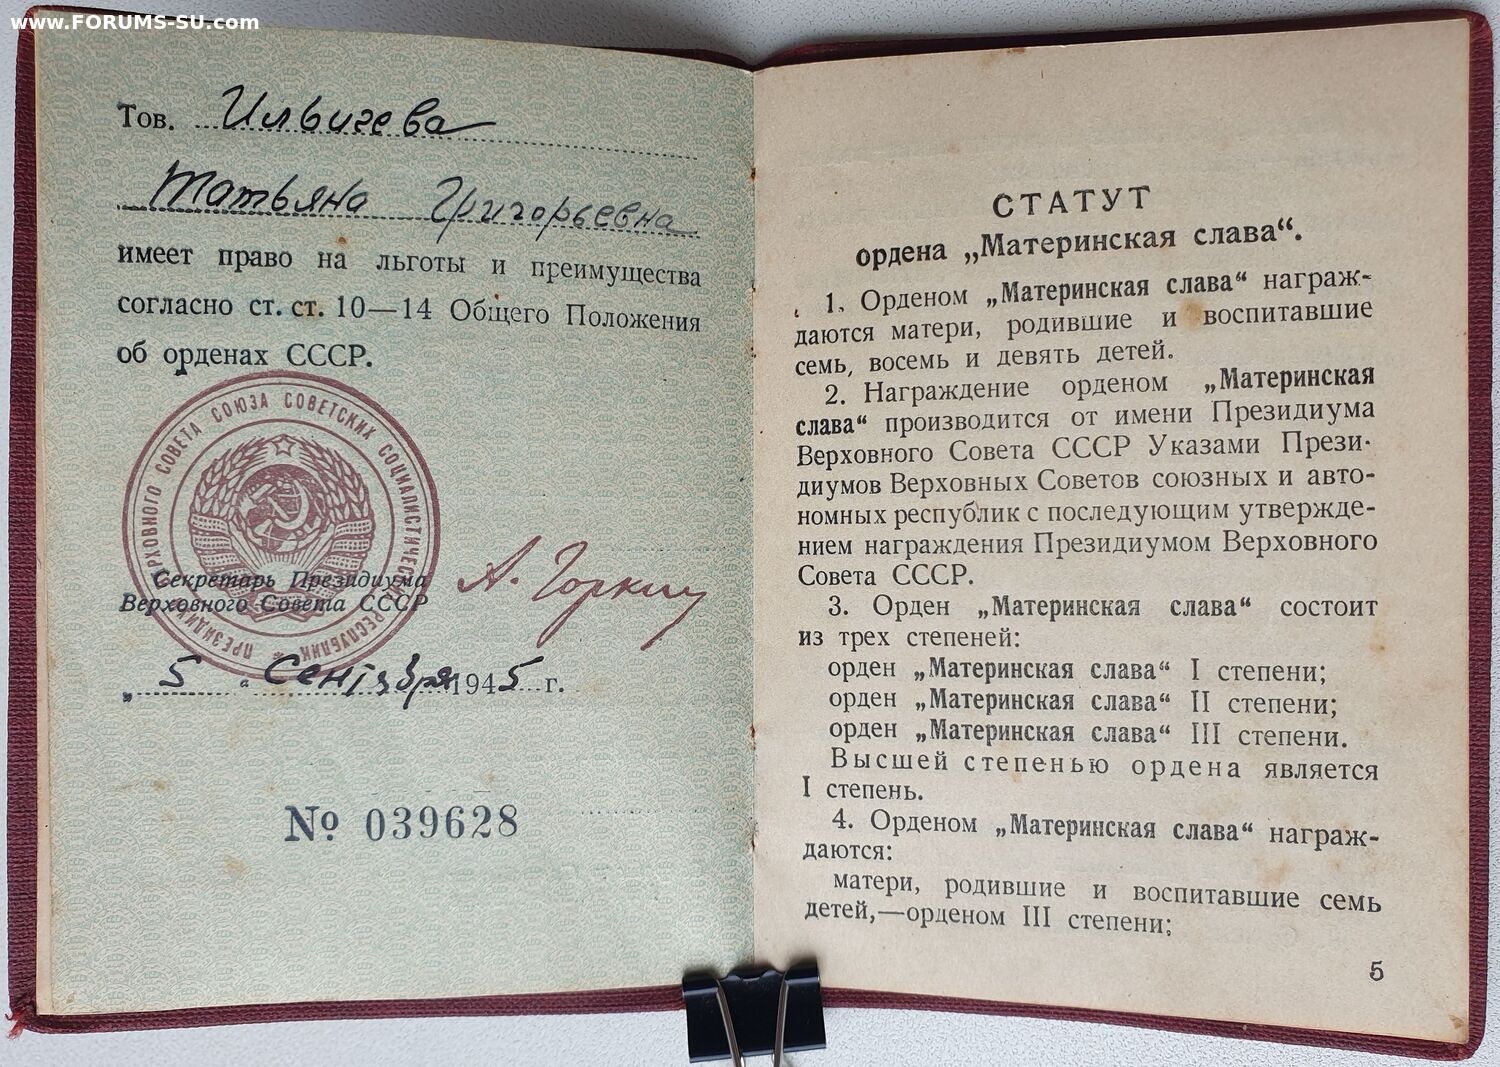 www.FORUMS-SU.com
Тов. Ильичева
Татьяна Григорьевна
имеет право на льготы и преимущества
согласно ст. ст. 10—14 Общего Положения
об орденах СССР.
ПРЕЗИДИУМ ВЕРХОВНОГО СОВЕТА СОЮЗА СОВЕТСКИХ СОЦИАЛИСТИЧЕСКИХ РЕСПУБЛИК
Секретарь Президиума
Верховного Совета СССР
А. Горкин
„ 5 “ Сентября 1945 г.
№ 039628
СТАТУТ
ордена „Материнская слава“.
1. Орденом „Материнская слава“ награж-
даются матери, родившие и воспитавшие
семь, восемь и девять детей.
2. Награждение орденом „Материнская
слава“ производится от имени Президиума
Верховного Совета СССР Указами Прези-
диумов Верховных Советов союзных и авто-
номных республик с последующим утвержде-
нием награждения Президиумом Верховного
Совета СССР.
3. Орден „Материнская слава“ состоит
из трех степеней:
орден „Материнская слава“ I степени;
орден „Материнская слава“ II степени;
орден „Материнская слава“ III степени.
Высшей степенью ордена является
I степень.
4. Орденом „Материнская слава“ награж-
даются:
матери, родившие и воспитавшие семь
детей,—орденом III степени;
5